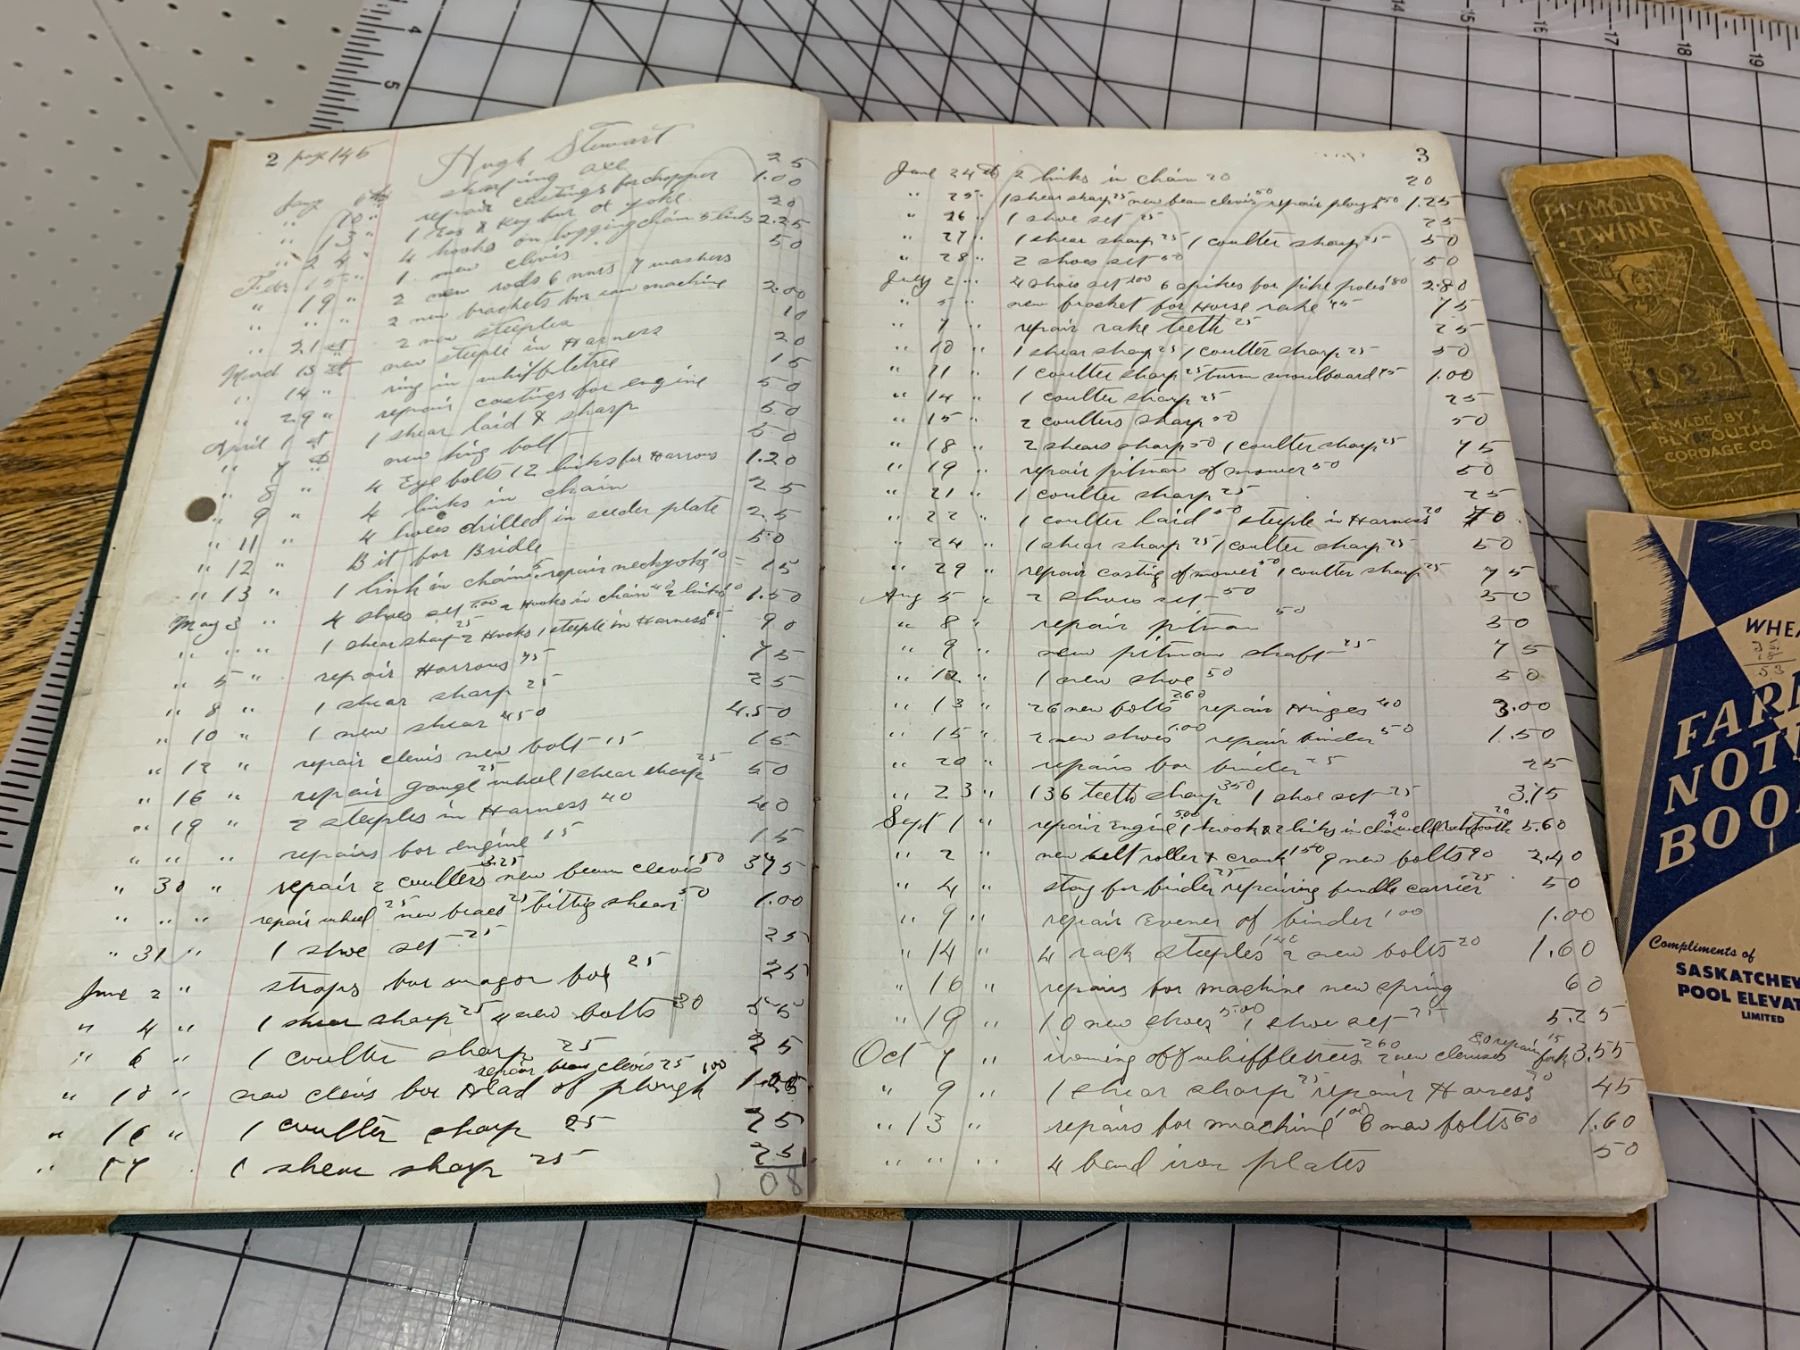 2 page 145
Hugh Stewart
sharping axe 25
repair castings for chopper 1.00
10 " 1 key bar ox yoke 20
" 13 " 4 hooks on logging chain 5 links 2.25
" 24 " 1 new clevis 50
Febr 15 " 2 new rods 6 nuts 7 washers
" 19 " 2 new brackets for saw machine 2.00
" " " 2 new steeples 10
" 21 st new steeple in Harness 20
March 13 ring in whiffletree 15
" 14 " repair castings for engine 50
" 29 " 1 shear laid & sharp 50
April 1 st new king bolt 50
" 7 4 Eye bolts 12 links for Harrows 1.20
" 8 " 4 links in chain 25
" 9 " 4 holes drilled in seeder plate 25
" 11 " Bit for Bridle 50
" 12 " 1 link in chain 5 repair neckyoke 10 = 15
" 13 " 4 shoes set 1.00 2 Hooks in chain 40 2 links 10 1.50
May 3 " 1 shear sharp 25 2 Hooks 1 steeple in Harness 65 90
" " " repair Harrows 75 75
" 5 " 1 shear sharp 25 25
" 8 " 1 new shear 450 4.50
" 10 " repair clevis new bolt 15 15
" 12 " repair gauge wheel 25 1 shear sharp 25 50
" 16 " 2 steeples in Harness 40 40
" 19 " repairs for engine 15 15
" " "
" 30 " repair 2 coulters 3.25 new beam clevis 50 375
" " " repair wheel 25 new brace 25 shear 50 1.00
" 31 " 1 shoe set 25 25
June 2 " straps for wagon box 25 25
" 4 " 1 shear sharp 25 4 new bolts 30 55
" 6 " 1 coulter sharp 25 25
repair beam clevis 25
" 10 " new clevis for Head of plough 100
" 16 " 1 coulter sharp 25 25
" 17 1 shear sharp 25 25
108
3
June 24th 2 links in chain 20 20
" 25 " 1 shear sharp 25 new beam clevis 50 repair plough 50 1.25
" 26 " 1 shoe set 25 25
" 27 " 1 shear sharp 25 1 coulter sharp 25 50
" 28 " 2 shoes set 50 50
July 2 " 4 shoes set 200 6 spikes for pike poles 80 2.80
" 5 " new bracket for Horse rake 75 75
" 7 " repair rake teeth 25 25
" 10 " 1 shear sharp 25 1 coulter sharp 25 50
" 11 " 1 coulter sharp 25 turn mouldboard 75 1.00
" 14 " 1 coulter sharp 25 25
" 15 " 2 coulters sharp 50 50
" 18 " 2 shears sharp 50 1 coulter sharp 25 75
" 19 " repair pitman of mower 50 50
" 21 " 1 coulter sharp 25 25
" 22 " 1 coulter laid 50 steeple in Harness 20 70
" 24 " 1 shear sharp 25 1 coulter sharp 25 50
" 29 " repair casting of mower 50 1 coulter sharp 25 75
Aug 5 " 2 shoes set 50 50
" 8 " repair pitman 50 50
" 9 " new pitman shaft 75
" 12 " 1 new shoe 50 50
" 13 " 26 new bolts 260 repair Hinges 40 3.00
" 15 " 2 new shoes 1.00 repair binder 50 1.50
" 20 " repairs for binder 25 25
" 23 " 136 teeth sharp 350 1 shoe set 25 3.75
Sept 1 " repair Engine 500 1 hook & 2 links in chain 40 20 5.60
" 2 " new belt roller & crank 150 9 new bolts 90 2.40
" 4 " stay for binder 25 repairing bundle carrier 25 50
" 9 " repair Evener of binder 100 1.00
" 14 " 4 rack steeples 140 2 new bolts 20 1.60
" 16 " repairs for machine new spring 60
" 19 " 10 new shoes 5.00 1 shoe set 25 5.25
Oct 7 " ironing off whiffletrees 260 2 new clevises 80 repair fork 15 3.55
" 9 " 1 shear sharp 25 repair Harness 20 45
" 13 " repairs for machine 100 6 new bolts 60 1.60
" " " 4 band iron plates 50
PLYMOUTH
TWINE
192
MADE BY
PLYMOUTH
CORDAGE CO.
WHEA
FAR
NOT
BOO
Compliments of
SASKATCHEW
POOL ELEVAT
LIMITED
4
5
14
15
16
17
18
19